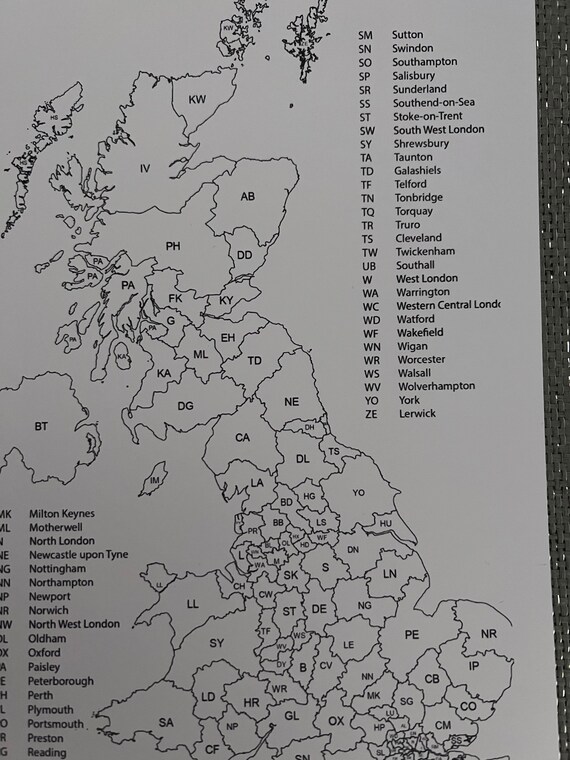 SM Sutton
SN Swindon
SO Southampton
SP Salisbury
SR Sunderland
SS Southend-on-Sea
ST Stoke-on-Trent
SW South West London
SY Shrewsbury
TA Taunton
TD Galashiels
TF Telford
TN Tonbridge
TQ Torquay
TR Truro
TS Cleveland
TW Twickenham
UB Southall
W West London
WA Warrington
WC Western Central Londo
WD Watford
WF Wakefield
WN Wigan
WR Worcester
WS Walsall
WV Wolverhampton
YO York
ZE Lerwick
KW
KW
HS
IV
AB
PH
DD
PA
PA
PA
FK
KY
G
PA
PA
EH
ML
KA
TD
KA
DG
NE
BT
CA
DH
DL
TS
IM
LA
YO
BD
HG
PR
BB
LS
HU
WF
OL
HD
DN
L
WA
M
S
LN
SK
CH
CW
LL
LL
ST
DE
NG
PE
NR
TF
WS
SY
WV
LE
DY
B
CV
IP
LD
WR
NN
CB
HR
MK
SG
CO
SA
NP
GL
OX
LU
CM
HP
SS
CF
SN
SL
MK Milton Keynes
ML Motherwell
N North London
NE Newcastle upon Tyne
NG Nottingham
NN Northampton
NP Newport
NR Norwich
NW North West London
OL Oldham
OX Oxford
PA Paisley
PE Peterborough
PH Perth
PL Plymouth
PO Portsmouth
PR Preston
RG Reading